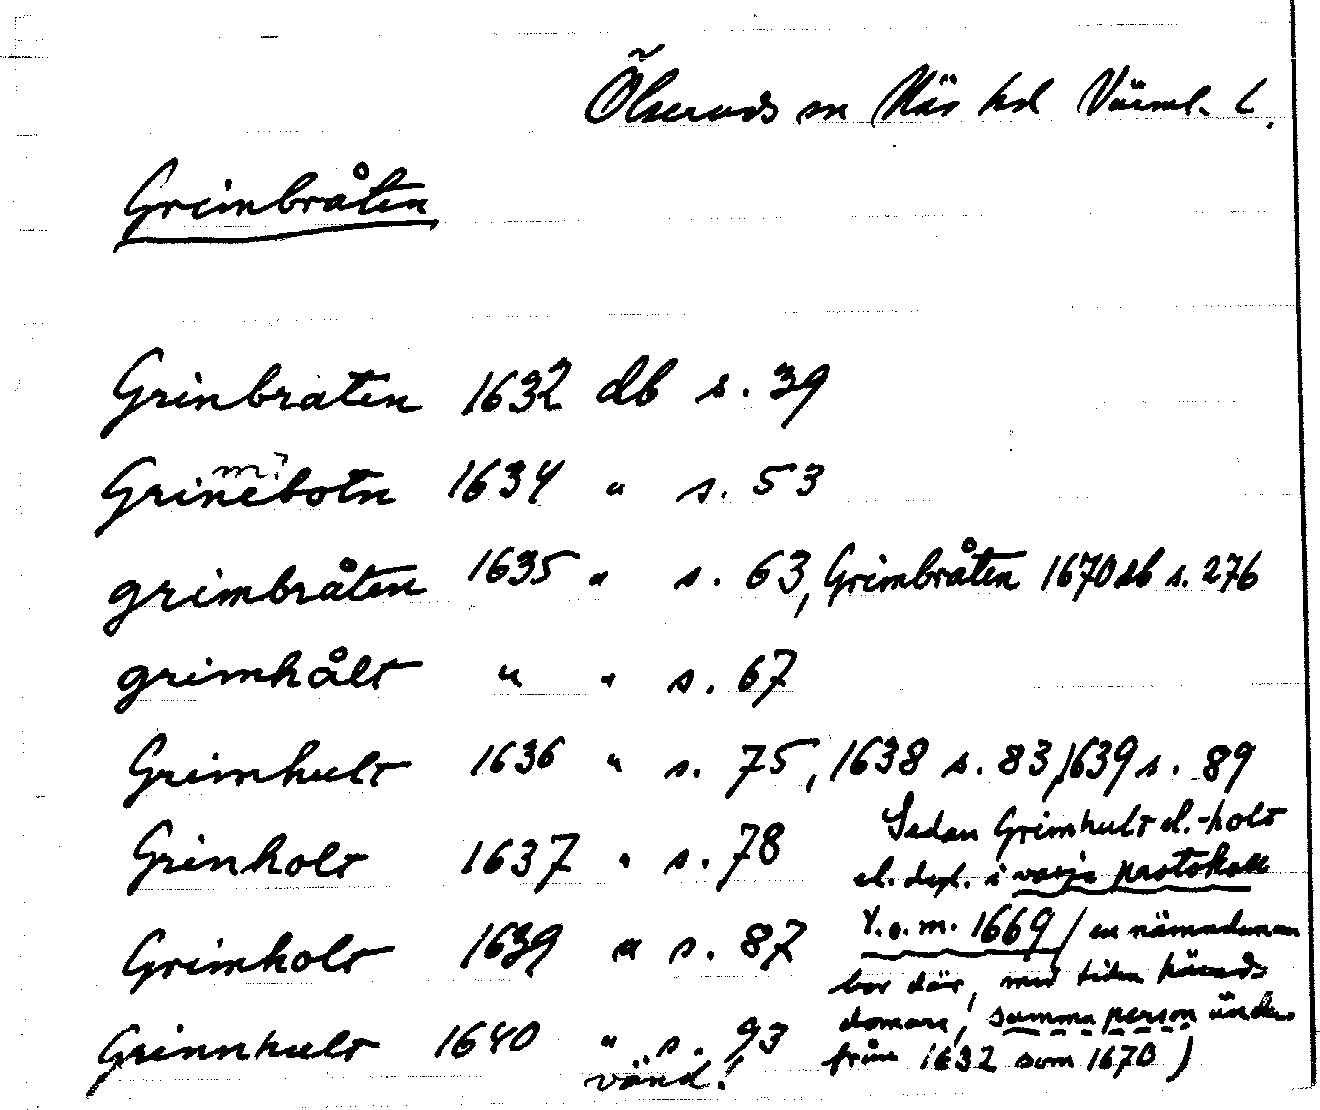 Ölseruds sn När hd Värml. L.
Grimbråten
Grinbraten 1632 db s. 39
m?
Grinebotn 1634 " s. 53
grimbråten 1635 " s. 63, Grimbråten 1670 db s. 276
grimhålt " " s. 67
Grimhult 1636 " s. 75, 1638 s. 83, 1639 s. 89
Grinholt 1637 " s. 78
Grimholt 1639 " s. 87
Grinnhult 1640 " s. 93
Sedan Grimhult el. -holt
el. dyl. i varje protokoll
t.o.m. 1669 / en nämndeman
bor där, med tiden härads
domare, samma person ända
från 1632 som 1670 )
vänd!